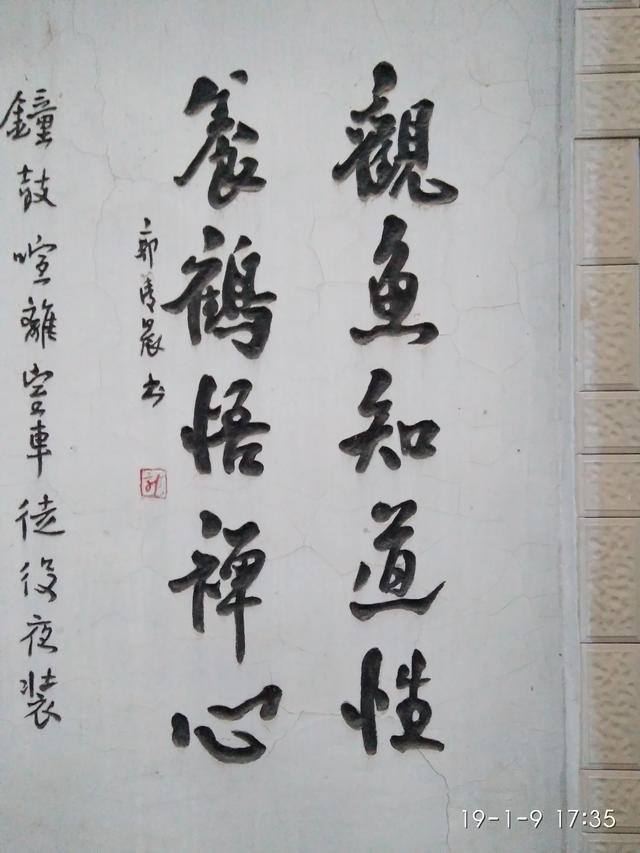 觀魚知道性
養鶴悟禪心
郭清晨书
鐘鼓喧離宮車徒役夜装
19-1-9 17:35